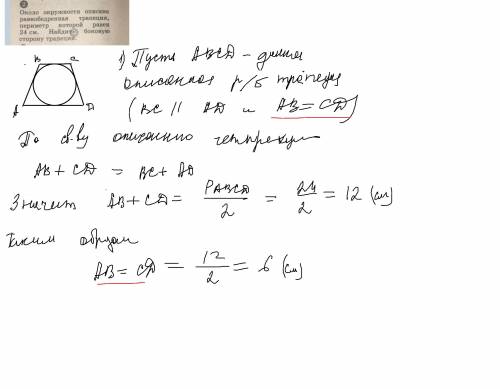 2
Около окружности описана
равнобедренная трапеция,
периметр которой равен
24 см. Найдите боковую
сторону трапеции.
B C
A D
1) Пусть ABCD – данная
описанная р/б трапеция
(BC || AD и AB = CD)
По св-ву описанного четырехуг
AB + CD = BC + AD
Значит AB + CD = PABCD/2 = 24/2 = 12 (см)
Таким образом
AB = CD = 12/2 = 6 (см)